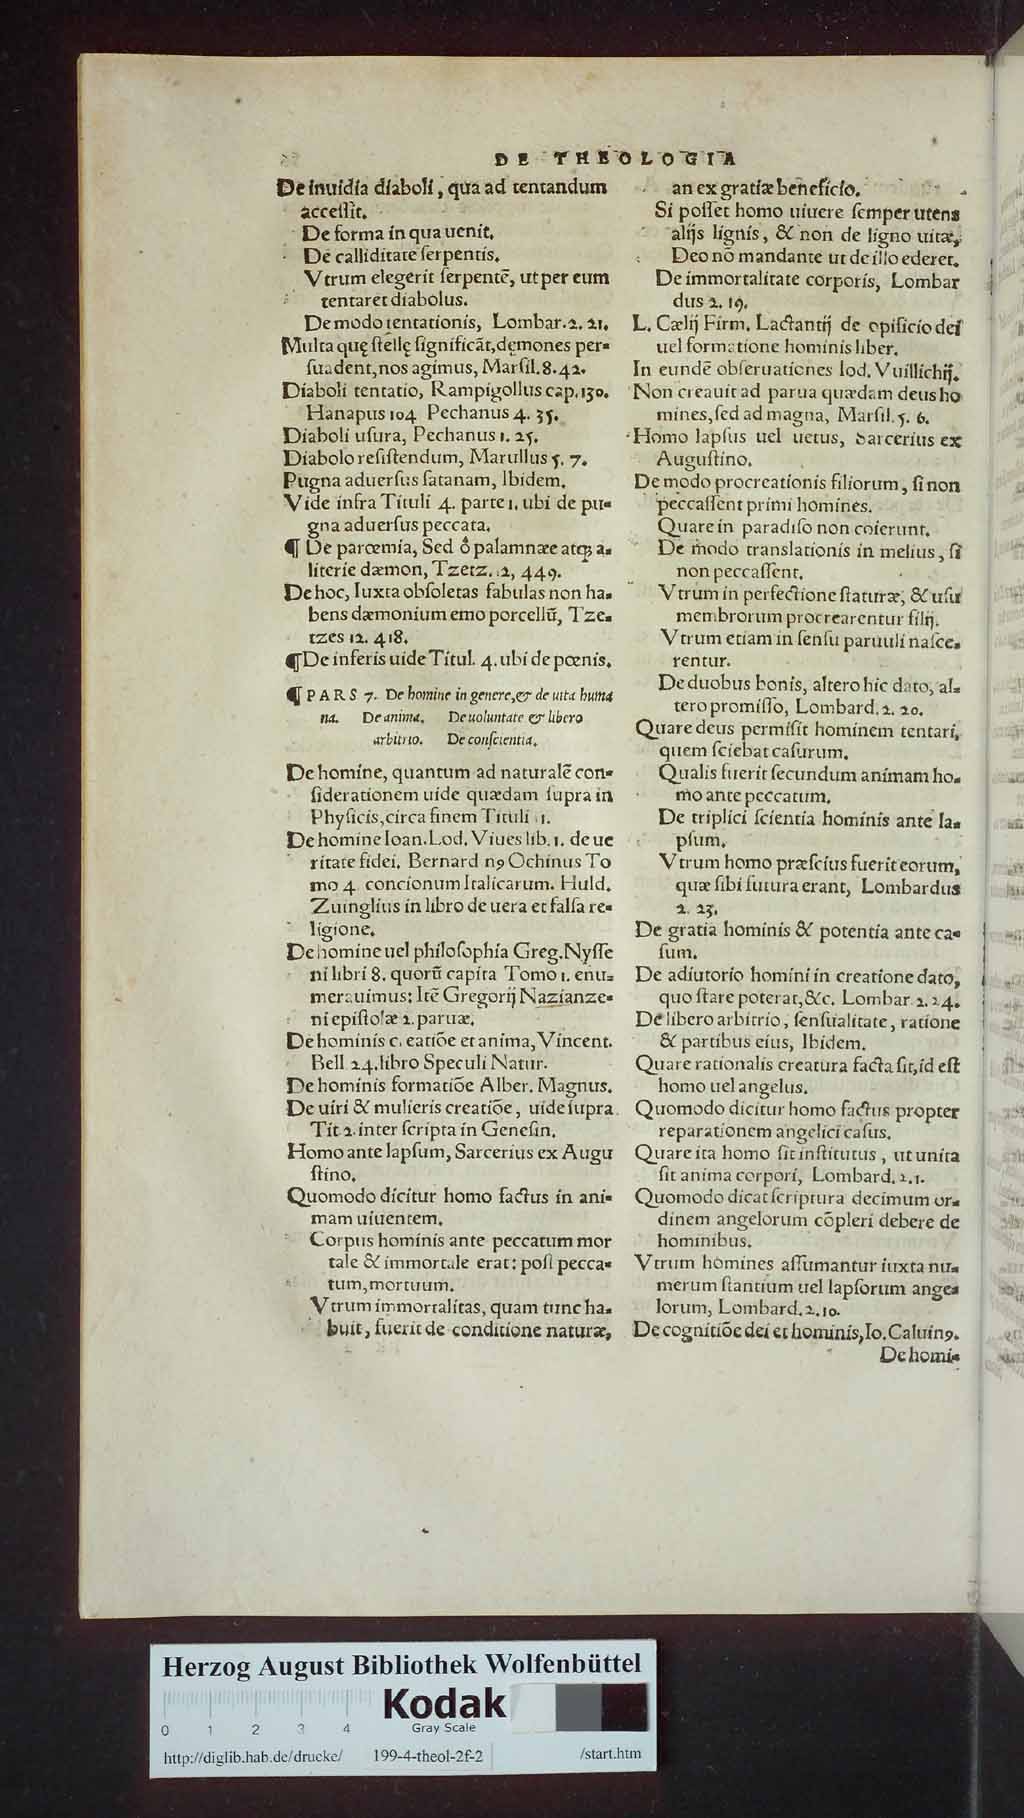 DE THEOLOGIA
De inuidia diaboli, qua ad tentandum
accessit.
De forma in qua uenit.
De calliditate serpentis.
Vtrum elegerit serpentē, ut per eum
tentaret diabolus.
De modo tentationis, Lombar. 2. 21.
Multa quę stellę significāt, dęmones per-
suadent, nos agimus, Marsil. 8. 42.
Diaboli tentatio, Rampigollus cap. 130.
Hanapus 104 Pechanus 4. 35.
Diaboli usura, Pechanus 1. 25.
Diabolo resistendum, Marullus 5. 7.
Pugna aduersus satanam, Ibidem.
Vide infra Tituli 4. parte 1. ubi de pu-
gna aduersus peccata.
¶ De parœmia, Sed ô palamnæe atq; a-
literie dæmon, Tzetz. 12, 449.
De hoc, Iuxta obsoletas fabulas non ha-
bens dæmonium emo porcellū, Tze-
tzes 12. 418.
¶ De inferis uide Titul. 4. ubi de pœnis.
¶ PARS 7. De homine in genere, & de uita huma
na. De anima. De uoluntate & libero
arbitrio. De conscientia.
De homine, quantum ad naturalē con-
siderationem uide quædam supra in
Physicis, circa finem Tituli 1.
De homine Ioan. Lod. Viues lib. 1. de ue
ritate fidei. Bernardin9 Ochinus To
mo 4 concionum Italicarum. Huld.
Zuinglius in libro de uera et falsa re-
ligione.
De homine uel philosophia Greg. Nysse
ni libri 8. quorū capita Tomo 1. enu-
merauimus: Itē Gregorij Nazianze-
ni epistolæ 2. paruæ.
De hominis c. eatiōe et anima, Vincent.
Bell 24. libro Speculi Natur.
De hominis formatiōe Alber. Magnus.
De uiri & mulieris creatiōe, uide supra
Tit 2. inter scripta in Genesin.
Homo ante lapsum, Sarcerius ex Augu
stino.
Quomodo dicitur homo factus in ani-
mam uiuentem.
Corpus hominis ante peccatum mor
tale & immortale erat: post pecca-
tum, mortuum.
Vtrum immortalitas, quam tunc ha-
buit, fuerit de conditione naturæ,
an ex gratiæ beneficio.
Si posset homo uiuere semper utens
alijs lignis, & non de ligno uitæ,
Deo nō mandante ut de illo ederet.
De immortalitate corporis, Lombar
dus 2. 19.
L. Cælij Firm. Lactantij de opificio dei
uel formatione hominis liber.
In eundē obseruationes Iod. Vuillichij.
Non creauit ad parua quædam deus ho
mines, sed ad magna, Marsil. 5. 6.
Homo lapsus uel uetus, Sarcerius ex
Augustino.
De modo procreationis filiorum, si non
peccassent primi homines.
Quare in paradiso non coierunt.
De modo translationis in melius, si
non peccassent.
Vtrum in perfectione staturæ, & usu
membrorum procrearentur filij.
Vtrum etiam in sensu paruuli nasce-
rentur.
De duobus bonis, altero hic dato, al-
tero promisso, Lombard. 2. 20.
Quare deus permisit hominem tentari,
quem sciebat casurum.
Qualis fuerit secundum animam ho-
mo ante peccatum.
De triplici scientia hominis ante la-
psum.
Vtrum homo præscius fuerit eorum,
quæ sibi futura erant, Lombardus
2. 23.
De gratia hominis & potentia ante ca-
sum.
De adiutorio homini in creatione dato,
quo stare poterat, &c. Lombar 2. 24.
De libero arbitrio, sensualitate, ratione
& partibus eius, Ibidem.
Quare rationalis creatura facta sit, id est
homo uel angelus.
Quomodo dicitur homo factus propter
reparationem angelici casus.
Quare ita homo sit institutus, ut unita
sit anima corpori, Lombard. 2. 1.
Quomodo dicat scriptura decimum or-
dinem angelorum cōpleri debere de
hominibus.
Vtrum homines assumantur iuxta nu-
merum stantium uel lapsorum ange-
lorum, Lombard. 2. 10.
De cognitiōe dei et hominis, Io. Caluin9.
De homi-
Herzog August Bibliothek Wolfenbüttel
Kodak
Gray Scale
0 1 2 3 4
http://diglib.hab.de/drucke/ 199-4-theol-2f-2 /start.htm